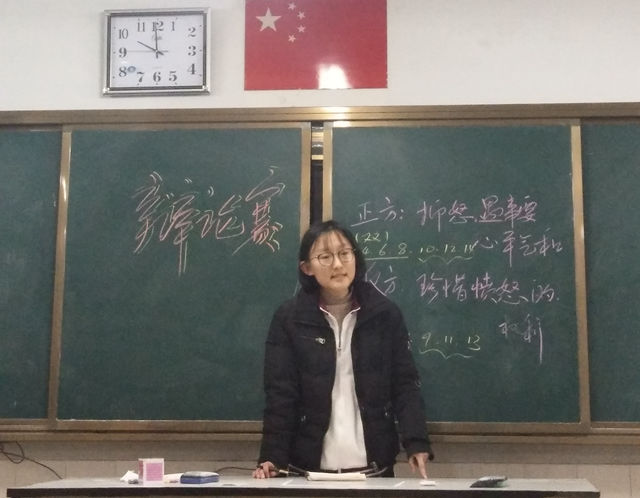 10 11 12 1 2 3 4 5 6 7 8 9
辩论赛
正方：抑怒，遇事要
(22)
4 6 8. 10. 12. 14 心平气和
反方. 珍惜愤怒的.
9. 11. 13 权利